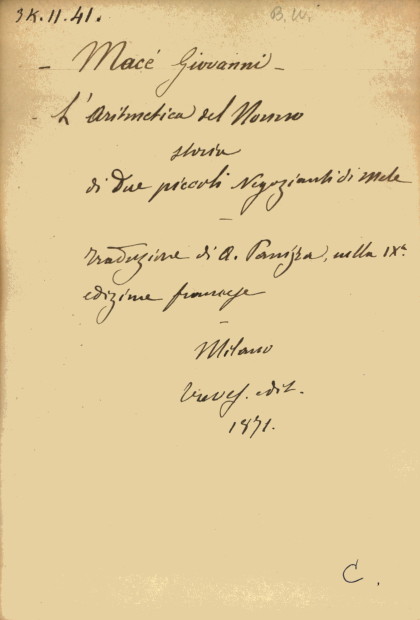 3K.11.41.
B. W.
- Macé Giovanni -
- L'Aritmetica del Nonno
storia
di Due piccoli Negozianti di Mele
-
traduzione di A. Panizza, sulla IXª
edizione francese
-
Milano
Treves. edit.
1871.
C.